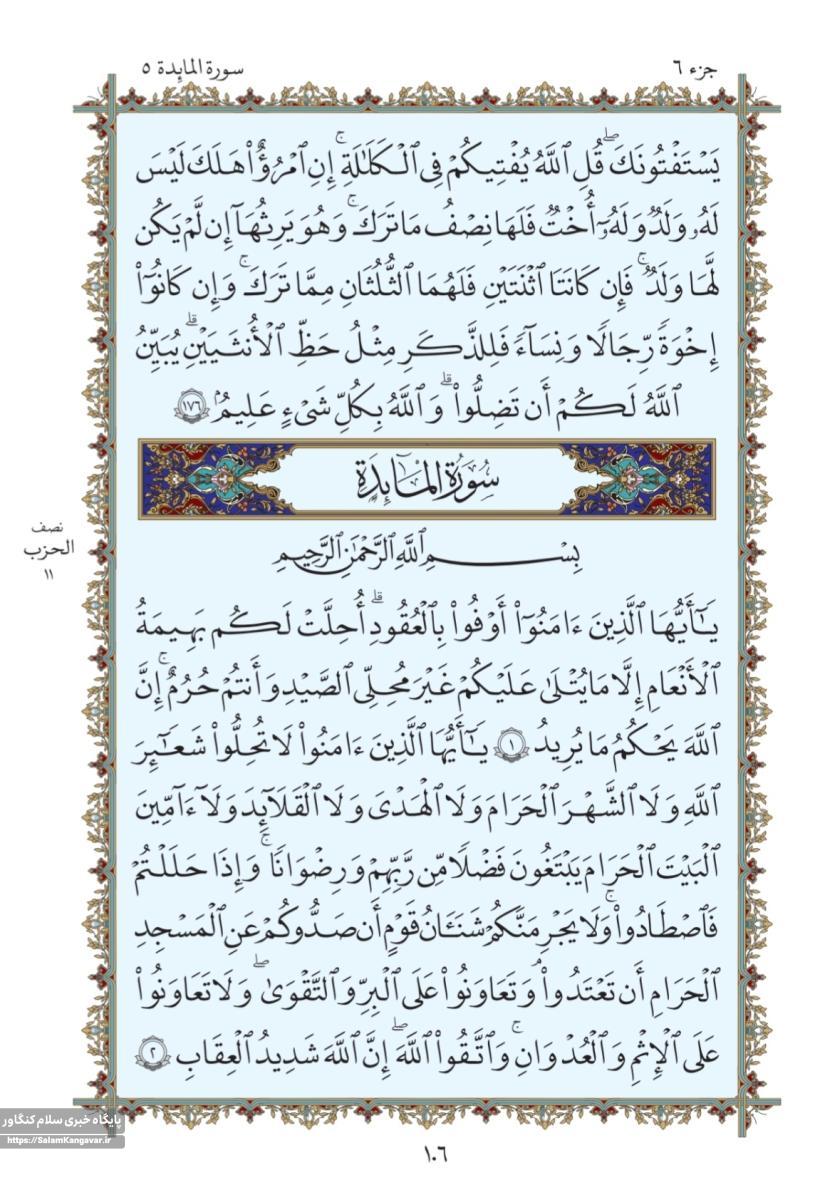 جزء ٦
سورة المائدة ٥
يَسۡتَفۡتُونَكَۖ قُلِ ٱللَّهُ يُفۡتِيكُمۡ فِي ٱلۡكَلَٰلَةِۚ إِنِ ٱمۡرُؤٌاْ هَلَكَ لَيۡسَ
لَهُۥ وَلَدٞ وَلَهُۥٓ أُخۡتٞ فَلَهَا نِصۡفُ مَا تَرَكَۚ وَهُوَ يَرِثُهَآ إِن لَّمۡ يَكُن
لَّهَا وَلَدٞۚ فَإِن كَانَتَا ٱثۡنَتَيۡنِ فَلَهُمَا ٱلثُّلُثَانِ مِمَّا تَرَكَۚ وَإِن كَانُوٓاْ
إِخۡوَةٗ رِّجَالٗا وَنِسَآءٗ فَلِلذَّكَرِ مِثۡلُ حَظِّ ٱلۡأُنثَيَيۡنِۗ يُبَيِّنُ
ٱللَّهُ لَكُمۡ أَن تَضِلُّواْۗ وَٱللَّهُ بِكُلِّ شَيۡءٍ عَلِيمُۢ ١٧٦
سُورَةُ المَائِدَةِ
بِسۡمِ ٱللَّهِ ٱلرَّحۡمَٰنِ ٱلرَّحِيمِ
نصف
الحزب
١١
يَٰٓأَيُّهَا ٱلَّذِينَ ءَامَنُوٓاْ أَوۡفُواْ بِٱلۡعُقُودِۗ أُحِلَّتۡ لَكُم بَهِيمَةُ
ٱلۡأَنۡعَٰمِ إِلَّا مَا يُتۡلَىٰ عَلَيۡكُمۡ غَيۡرَ مُحِلِّي ٱلصَّيۡدِ وَأَنتُمۡ حُرُمٌۚ إِنَّ
ٱللَّهَ يَحۡكُمُ مَا يُرِيدُ ١ يَٰٓأَيُّهَا ٱلَّذِينَ ءَامَنُواْ لَا تُحِلُّواْ شَعَٰٓئِرَ
ٱللَّهِ وَلَا ٱلشَّهۡرَ ٱلۡحَرَامَ وَلَا ٱلۡهَدۡيَ وَلَا ٱلۡقَلَٰٓئِدَ وَلَآ ءَآمِّينَ
ٱلۡبَيۡتَ ٱلۡحَرَامَ يَبۡتَغُونَ فَضۡلٗا مِّن رَّبِّهِمۡ وَرِضۡوَٰنٗاۚ وَإِذَا حَلَلۡتُمۡ
فَٱصۡطَادُواْۚ وَلَا يَجۡرِمَنَّكُمۡ شَنَـَٔانُ قَوۡمٍ أَن صَدُّوكُمۡ عَنِ ٱلۡمَسۡجِدِ
ٱلۡحَرَامِ أَن تَعۡتَدُواْۘ وَتَعَاوَنُواْ عَلَى ٱلۡبِرِّ وَٱلتَّقۡوَىٰۖ وَلَا تَعَاوَنُواْ
عَلَى ٱلۡإِثۡمِ وَٱلۡعُدۡوَٰنِۚ وَٱتَّقُواْ ٱللَّهَۖ إِنَّ ٱللَّهَ شَدِيدُ ٱلۡعِقَابِ ٢
پایگاه خبری سلام کنگاور
https://SalamKangavar.ir
١٠٦